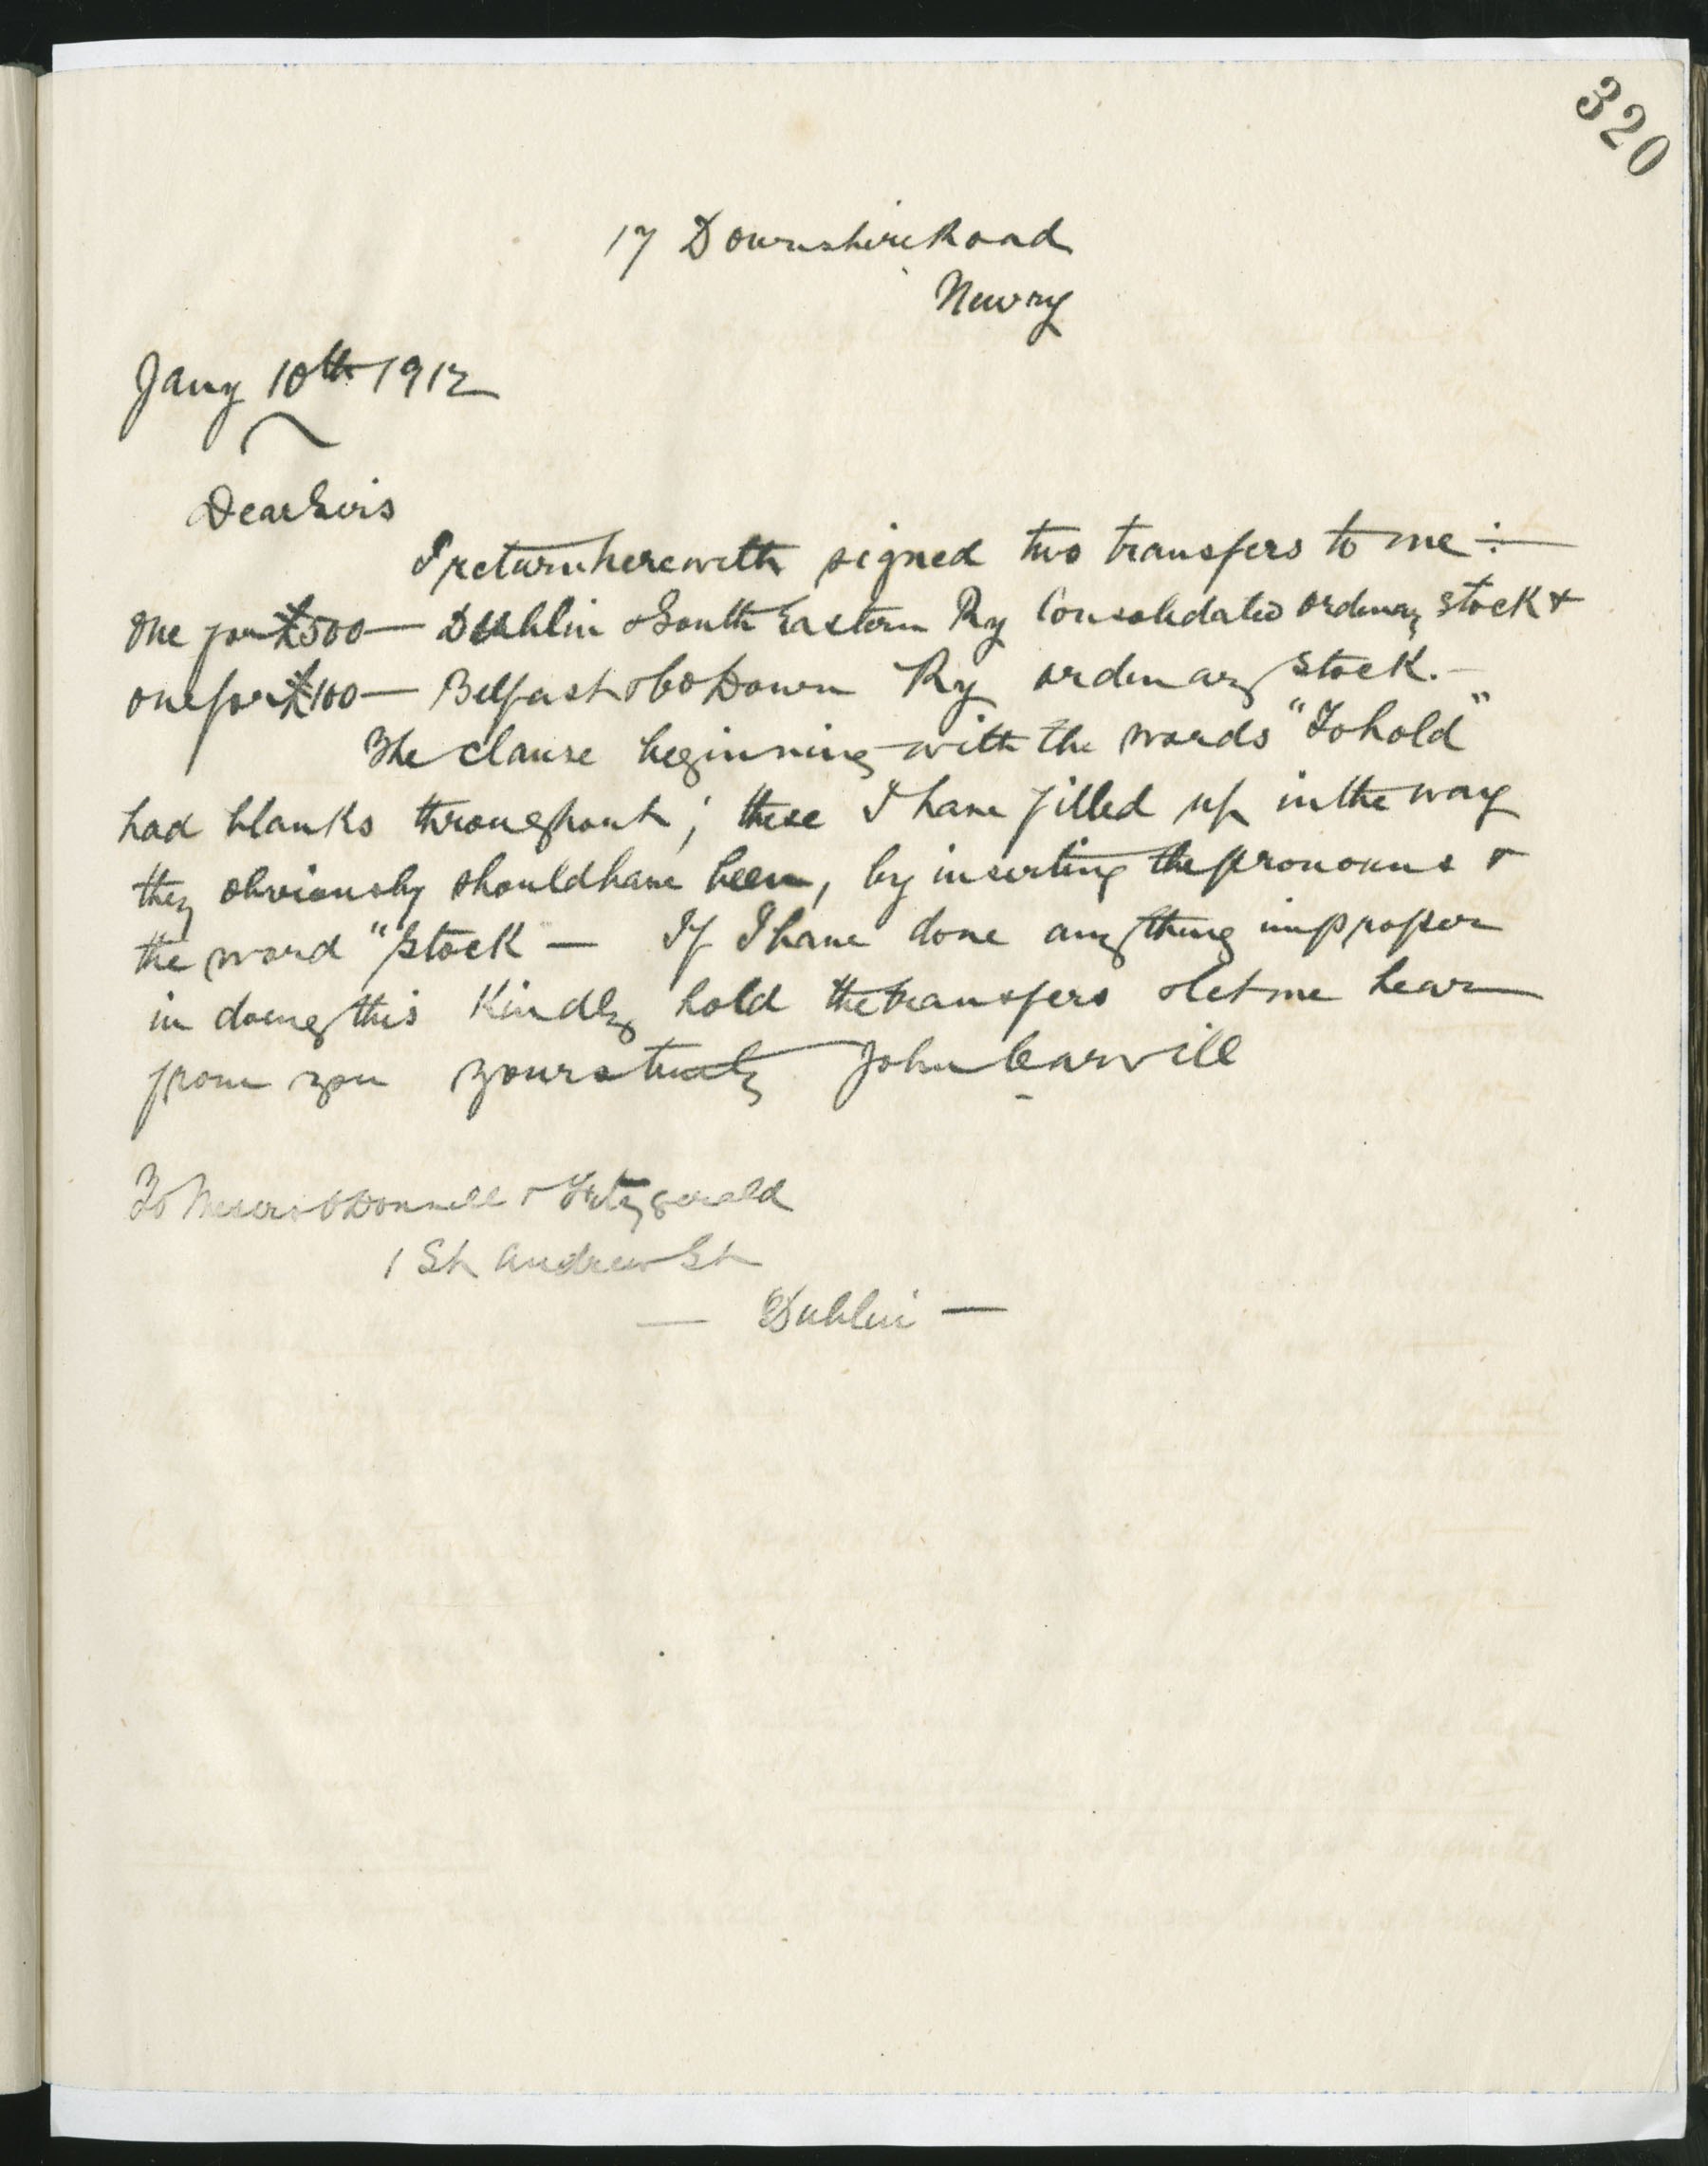 320
17 Downshire Road
Newry
Jany 10th 1912
Dear Sirs
I return herewith signed two transfers to me :—
One for £500 — Dublin & South Eastern Ry Consolidated ordinary stock &
one for £100 — Belfast & Co Down Ry ordinary stock. —
The clause beginning with the words "To hold"
had blanks throughout; these I have filled up in the way
they obviously should have been, by inserting the pronouns &
the word "stock — If I have done anything improper
in doing this kindly hold the transfers & let me hear
from you yours truly John Carvill
To Messrs O'Donnell & Fitzgerald
1 St Andrew St
— Dublin —